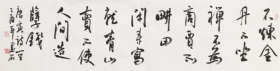 不煉金
丹不坐
禪不為
商賈不
畊田
閒來寫
就青山
賣不使
人間造
孽錢